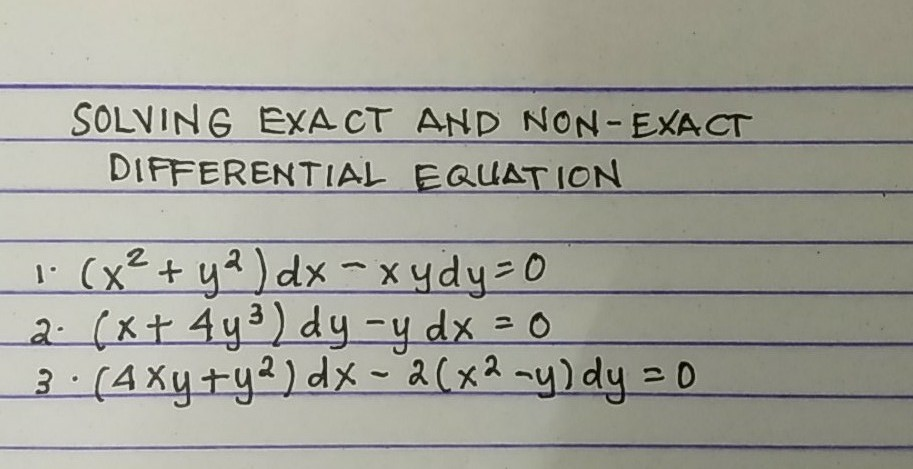 SOLVING EXACT AND NON-EXACT
DIFFERENTIAL EQUATION
1. (x² + y²) dx - xy dy = 0
2. (x + 4y³) dy - y dx = 0
3. (4xy + y²) dx - 2(x² - y) dy = 0